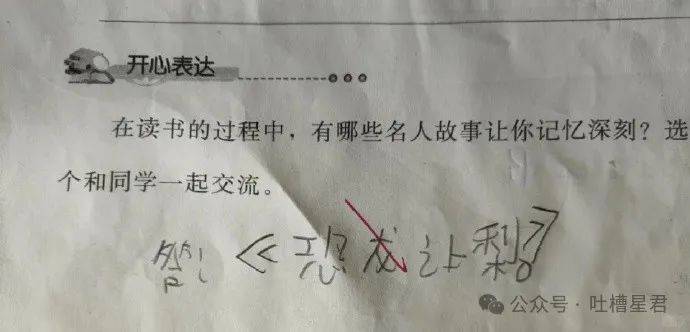 开心表达
在读书的过程中，有哪些名人故事让你记忆深刻？选
个和同学一起交流。
答：《恐龙让梨》
公众号·吐槽星君